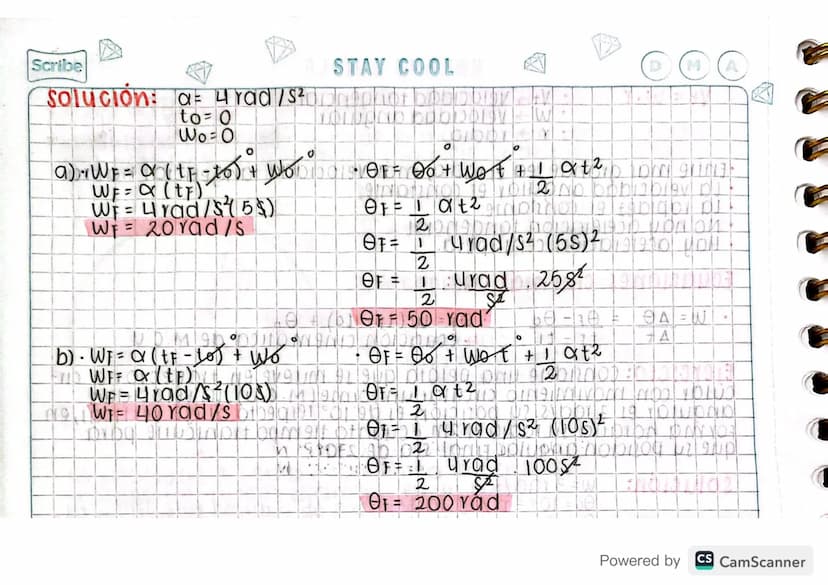 Scribe
STAY COOL
D M A
Solución: α= 4rad/s²
to=0
Wo=0
a)·WF= α(tF-to)⁰+ Wo⁰
WF= α(tF)
WF= 4rad/s²(5s)
WF= 20rad/s
·θF= θo⁰+Wot⁰+ 1/2 αt²
θF= 1/2 αt²
θF= 1/2 4rad/s² (5s)²
θF = 1/2 · 4rad/s² · 25s²
θF=50 rad
b)·WF= α(tF-to)⁰+ Wo⁰
WF= α(tF)
WF= 4rad/s²(10s)
WF= 40rad/s
·θF= θo⁰+ Wot⁰+ 1/2 αt²
θF= 1/2 αt²
θF= 1/2 4rad/s² (10s)²
θF= 1/2 4rad/s² · 100s²
θF= 200rad
Powered by CS CamScanner